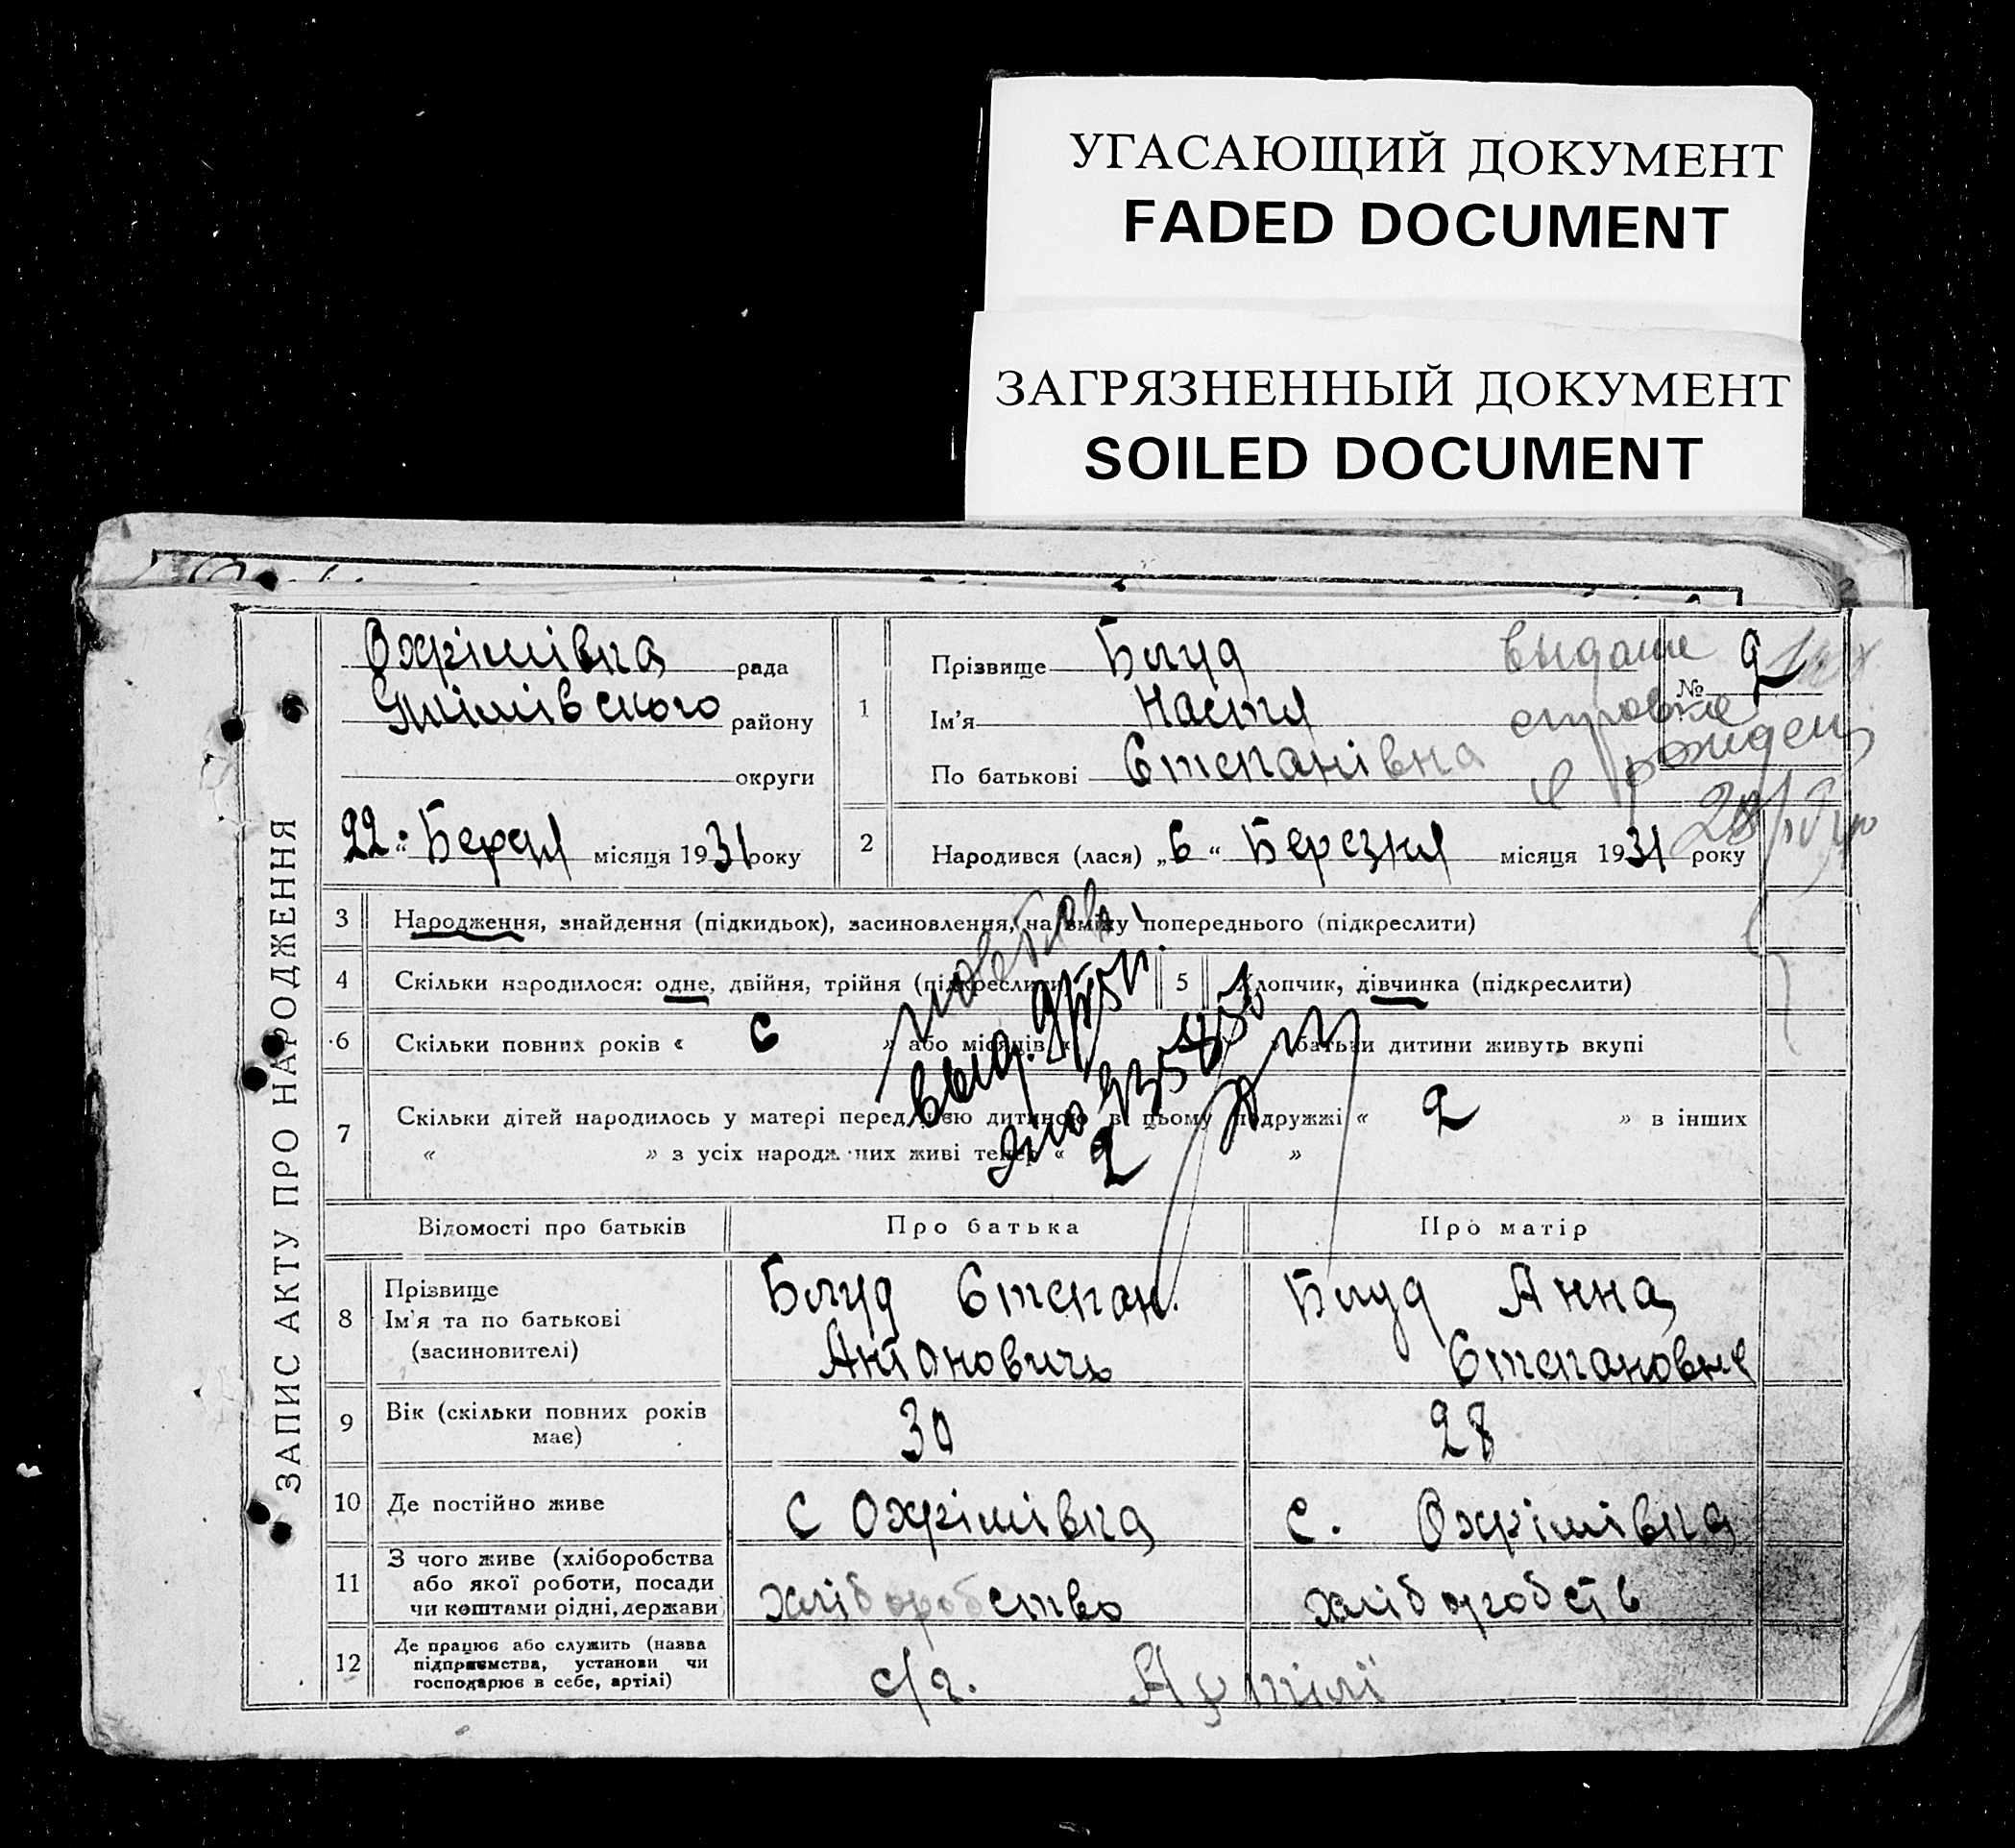 УГАСАЮЩИЙ ДОКУМЕНТ
FADED DOCUMENT
ЗАГРЯЗНЕННЫЙ ДОКУМЕНТ
SOILED DOCUMENT
ЗАПИС АКТУ ПРО НАРОДЖЕННЯ
Охрімівна рада
району
округи
22 " місяця 1931 року
1 Прізвище Блуд
Ім'я Настя
По батькові Степанівна
№ 9
2 Народився (лася) „6 “ Березня місяця 1931 року
3 Народження, знайдення (підкидьок), засиновлення, на зміну попереднього (підкреслити)
4 Скільки народилося: одне, двійня, трійня (підкреслити)
5 Хлопчик, дівчинка (підкреслити)
6 Скільки повних років « 6 » або місяців « » батьки дитини живуть вкупі
7 Скільки дітей народилось у матері перед цією дитиною в цьому подружжі « 2 » в інших
« » з усіх народжених живі тепер « 2 »
Відомості про батьків Про батька Про матір
8 Прізвище
Ім'я та по батькові
(засиновителі)
Блуд Степан
Антонович
Блуд Анна
Степановне
9 Вік (скільки повних років
має)
30
28
10 Де постійно живе
С Охрімівна
с. Охрімівна
11 З чого живе (хліборобства
або якої роботи, посади
чи коштами рідні, держави
хліборобство
хліборобств
12 Де працює або служить (назва
підприємства, установи чи
господарює в себе, артілі)
с/г. Артілі